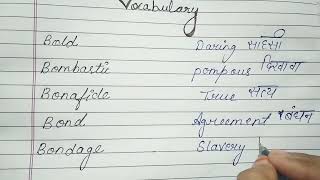 Vocabulary
Bold Daring साहसी
Bombastic pompous दिखावा
Bonafide True सत्य
Bond Agreement बंधन
Bondage Slavery